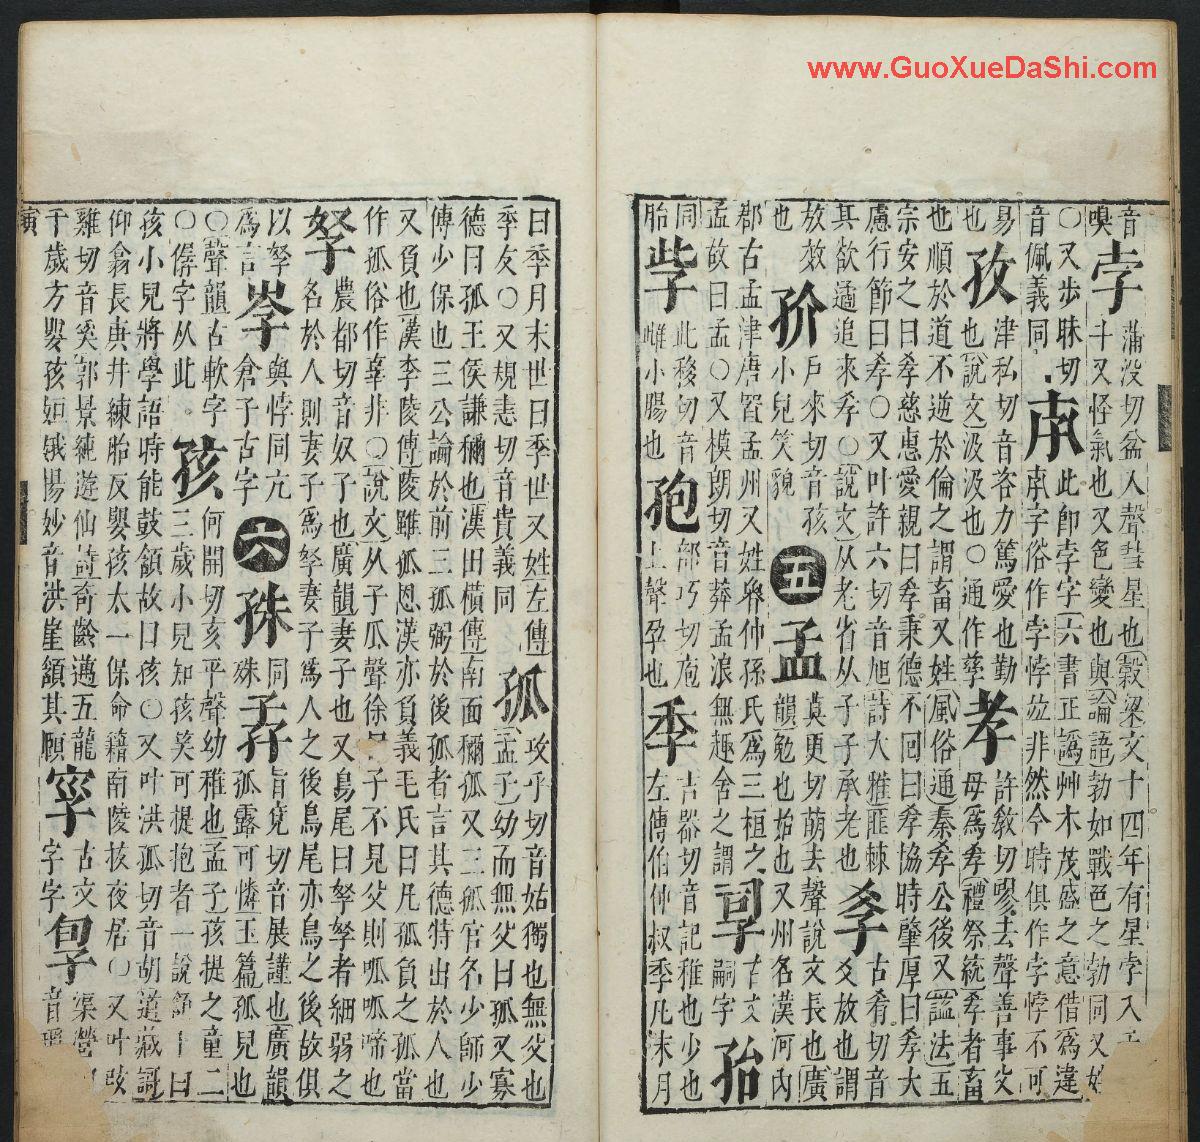 www.GuoXueDaShi.com
音
嗅
孛
蒲没切盆入聲彗星也穀梁文十四年有星孛入
斗又怪氣也又色變也與論語勃如戰色之勃同又姓
○又步昧切
音佩義同
𣎵
此卽孛字六書正譌艸木茂盛之意借爲違
𣎵字俗作孛悖竝非然今時俱作孛悖不可
易
也
孜
津私切音咨力篤愛也勤
也說文汲汲也○通作孳
孝
許教切嘐去聲善事父
母爲孝禮祭統孝者畜
也順於道不逆於倫之謂畜又姓風俗通秦孝公後又諡法五
宗安之曰孝慈惠愛親曰孝秉德不回曰孝協時肇厚曰孝大
慮行節曰孝○又叶許六切音旭詩大雅匪棘
其欲遹追來孝○說文从老省从子子承老也
𡥈
古肴切音
爻放也謂
放效
也
戶來切音孩
小兒笑貌
五
孟
莫更切萌去聲說文長也廣
韻勉也始也又州名漢河內
郡古孟津唐置孟州又姓魯仲孫氏爲三桓之
孟故曰孟○又模朗切音莽孟浪無趣舍之謂
古文
嗣字
孡
同
胎
此移切音
雌小腸也
孢
部巧切庖
上聲孕也
季
吉器切音記稚也少也
左傳伯仲叔季凡末月
曰季月末世曰季世又姓左傳
季友○又規恚切音貴義同
孤
攻乎切音姑獨也無父也
孟子幼而無父曰孤又寡
德曰孤王侯謙稱也漢田橫傳南面稱孤又三孤官名少師少
傅少保也三公論於前三孤弼於後孤者言其德特出於人也
又負也漢李陵傳陵雖孤恩漢亦負義毛氏曰凡孤負之孤當
作孤俗作辜非○說文从子瓜聲徐曰子不見父則呱呱啼也
孥
農都切音奴子也廣韻妻子也又鳥尾曰孥孥者細弱之
名於人則妻子爲孥妻子爲人之後鳥尾亦鳥之後故俱
以孥
爲言
與悖同亢
倉子古字
六
同
姝
孨
旨兗切音展謹也廣韻
孤露可憐玉篇孤兒也
○聲韻古軟字
○孱字从此
孩
何開切亥平聲幼稚也孟子孩提之童二
三歲小兒知孩笑可提抱者一說
曰
孩小兒將學語時能鼓頷故曰孩○又叶洪孤切音胡道藏謌
仰翕長庚井練胎反嬰孩太一保命籍南陵拔夜居○又叶
雞切音奚郭景純遊仙詩奇齡邁五龍
千歲方嬰孩姮娥揚妙音洪崖頷其頤
古文
字字
渠營
音